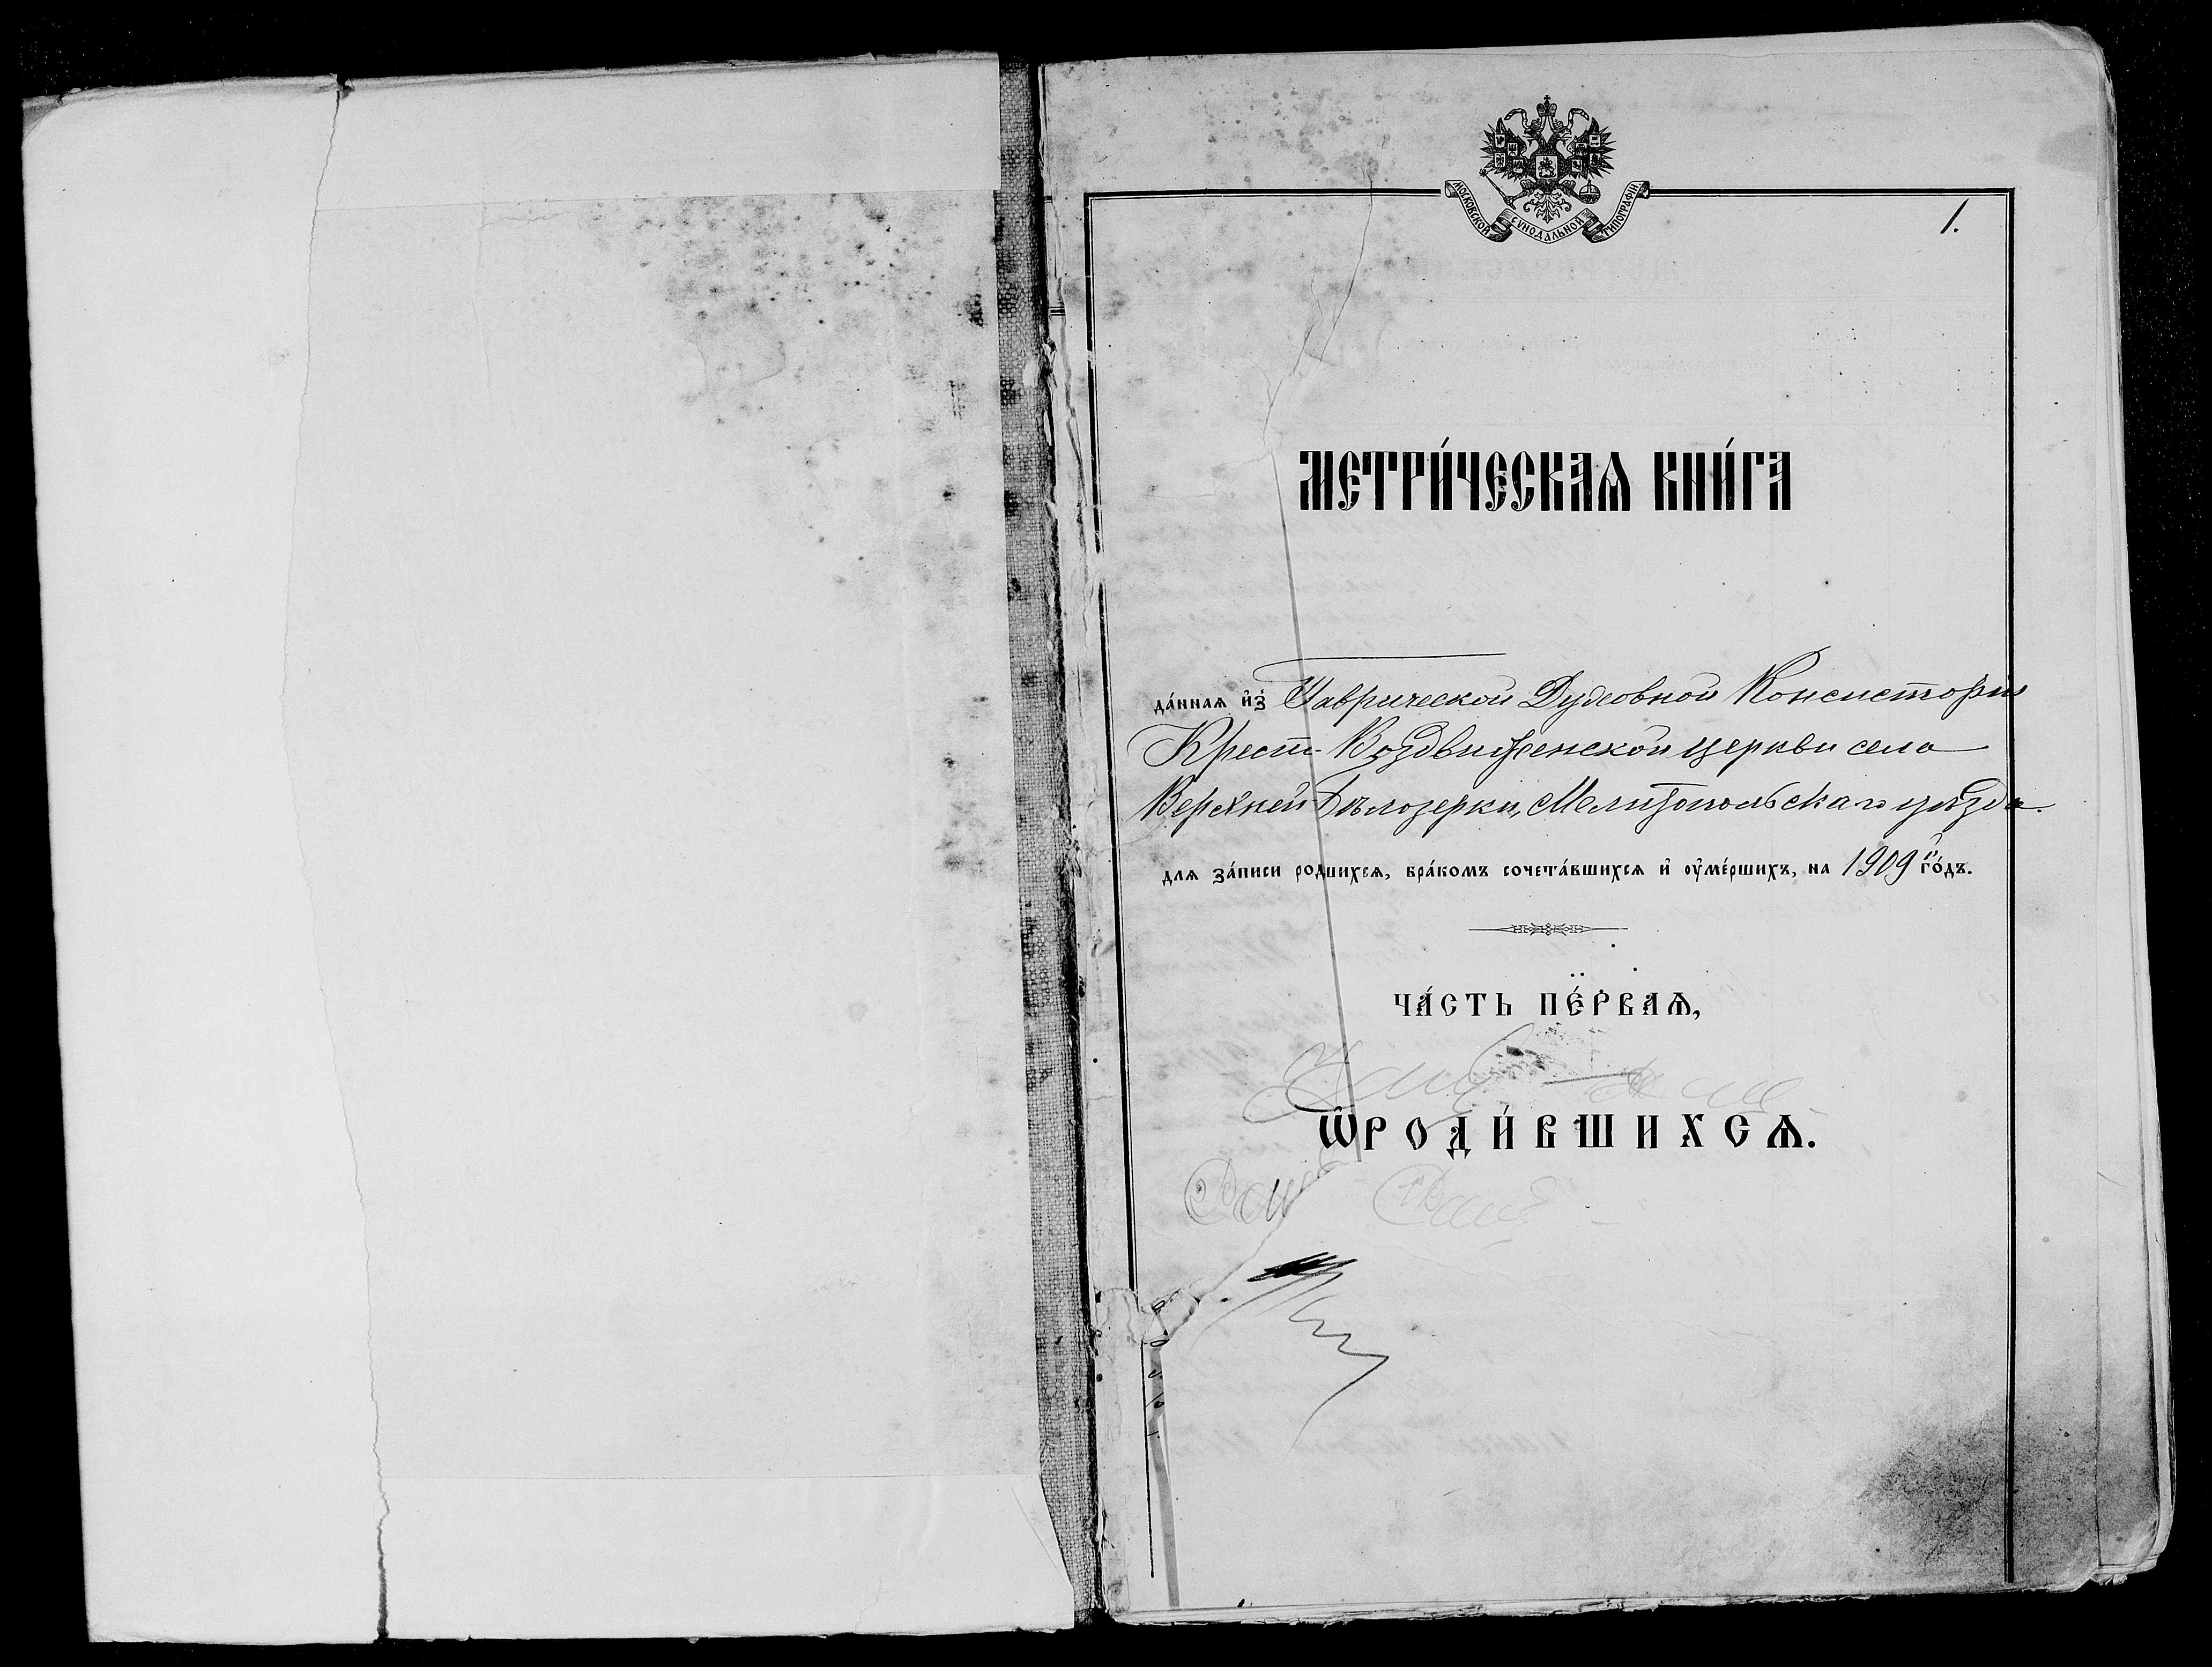 МОСКОВСКОЙ СУНОДАЛЬНОЙ ТИПОГРАФІИ
1.
МЕТРИ́ЧЕСКАѦ КНИ́ГА
да́ннаѧ и҆з̾ Таврической Духовной Консисторіи
Кресто-Воздвиженской церкви села
Верхней-Бѣлозерки, Мелитопольскаго уѣзда
длѧ за́писи роди́вшихсѧ, бра́комъ сочета́вшихсѧ и҆ ᲂу҆ме́ршихъ, на 1909 й го́дъ.
ЧА́СТЬ ПЕ́РВАѦ,
Ѡ҆ РОДИ́ВШИХСѦ.